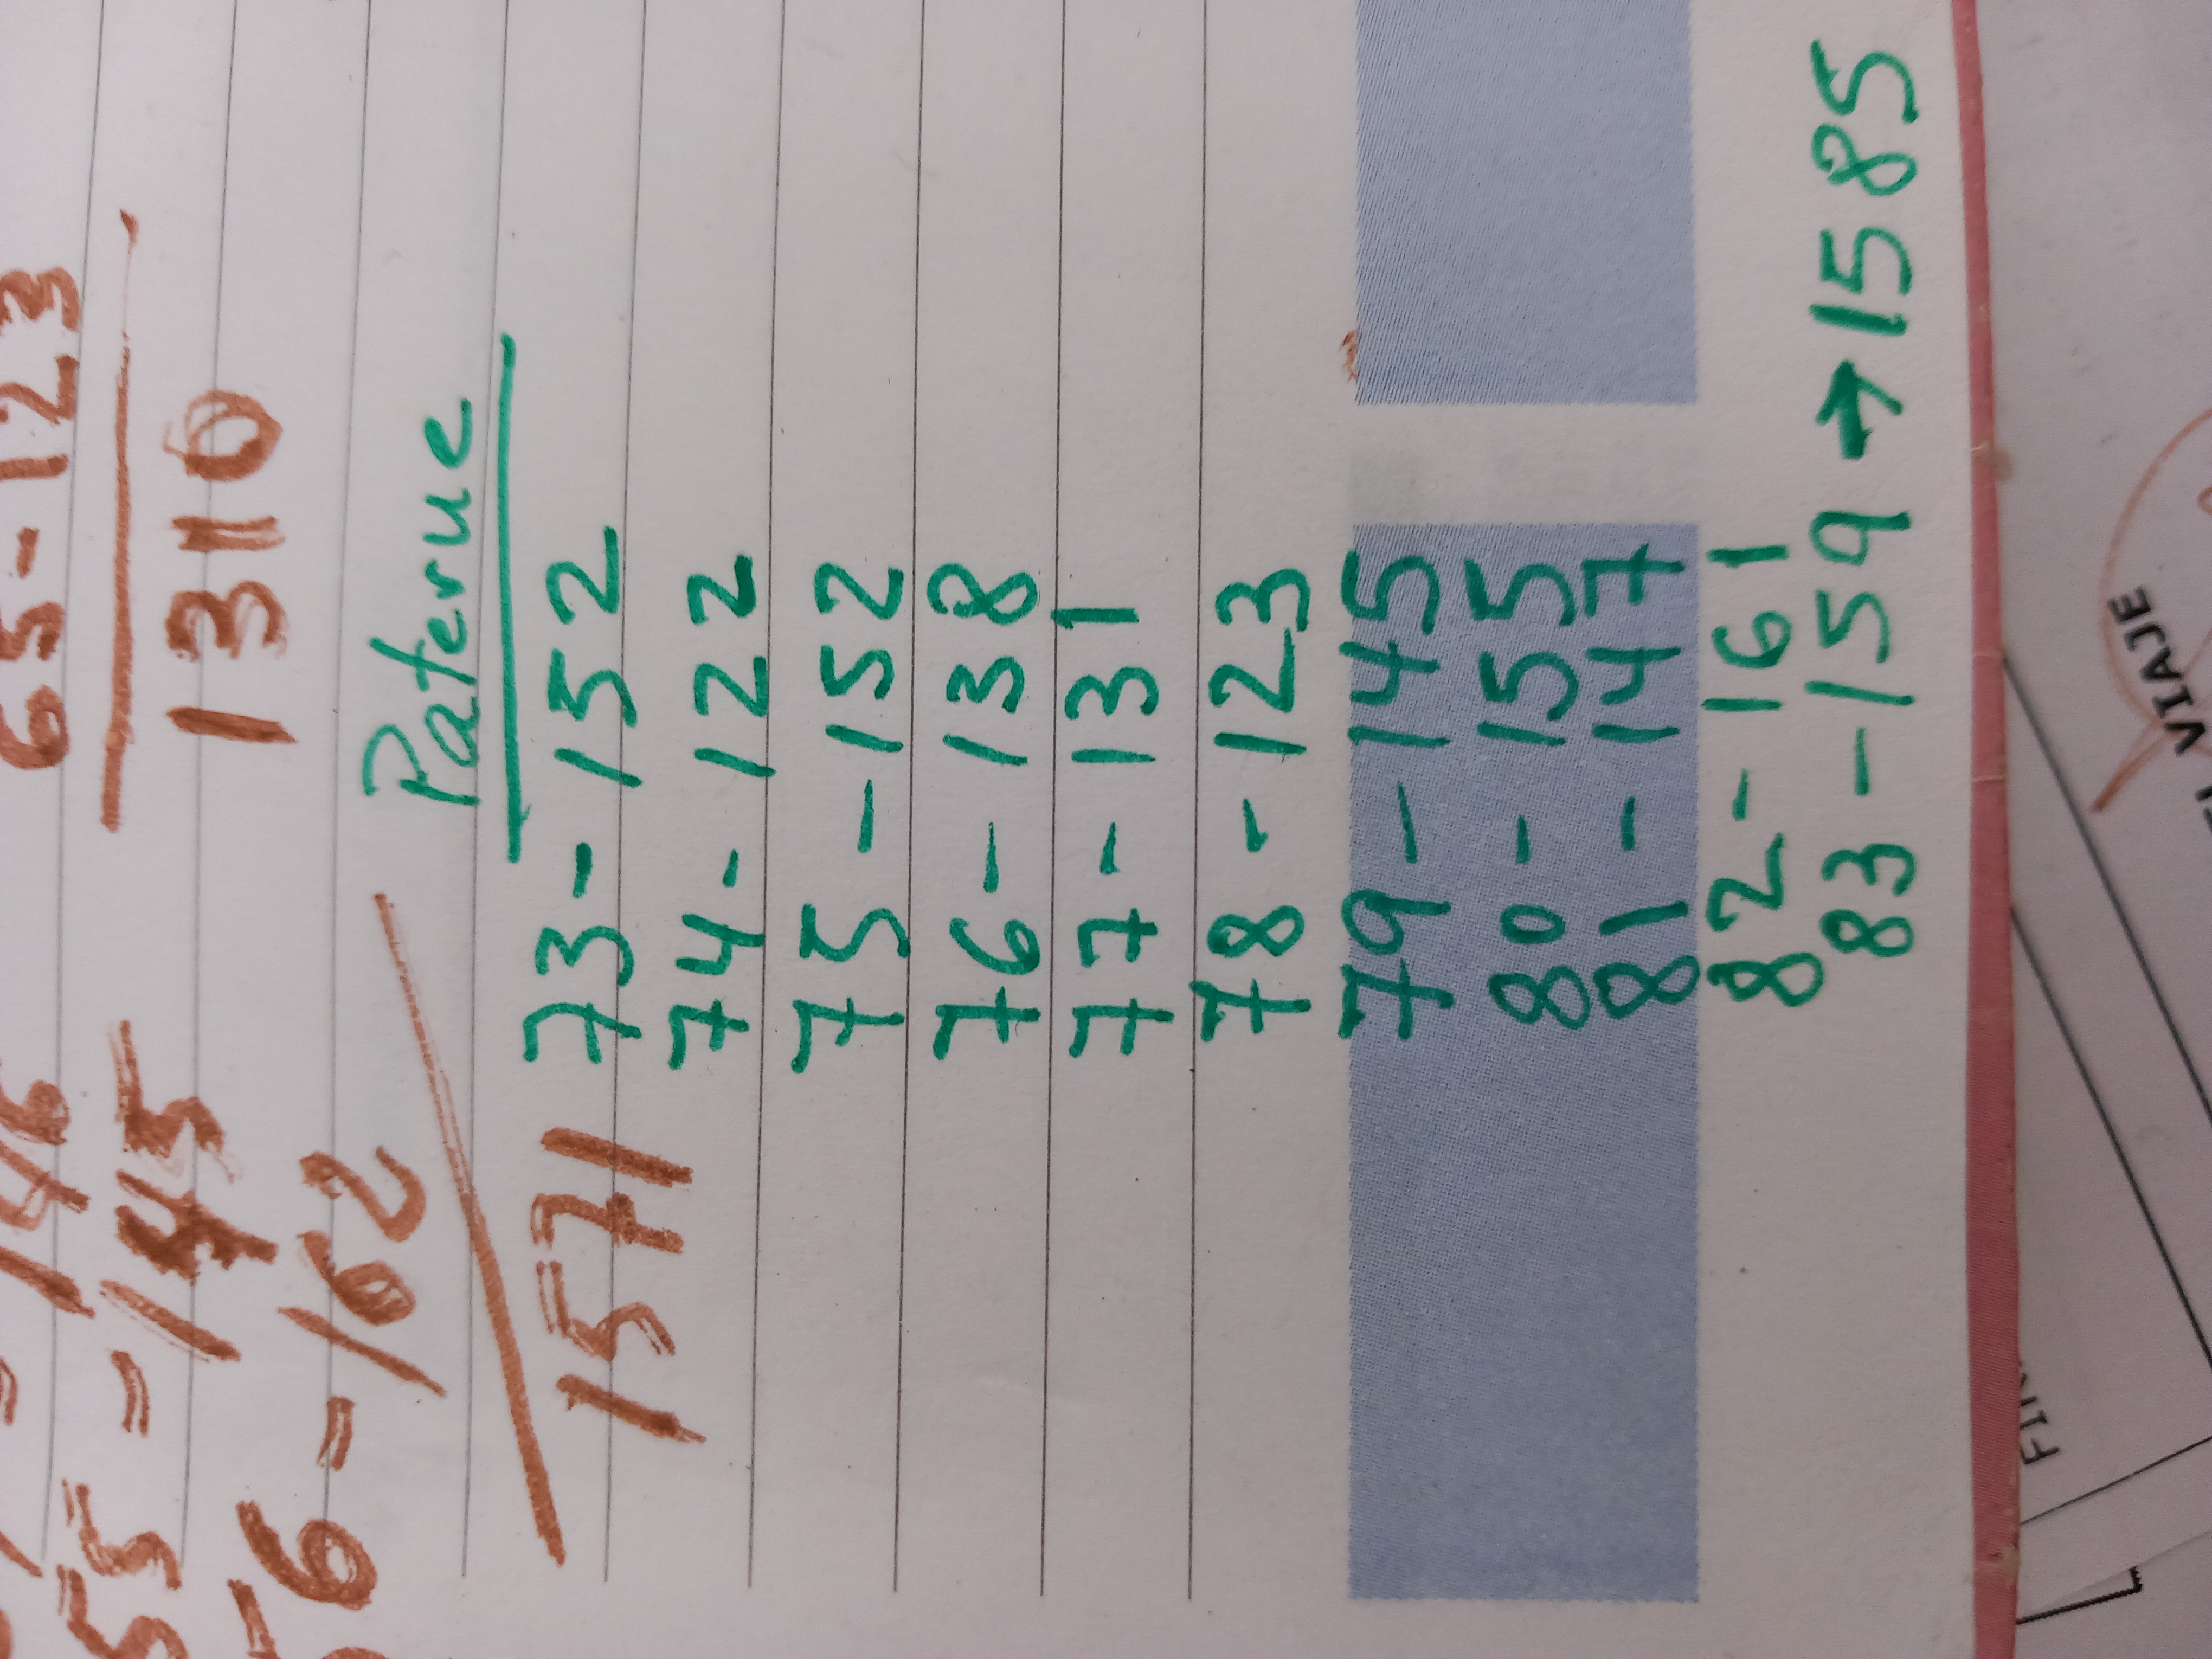 65-123
1310
146
55-145
56-162
1571
Paterue
73-152
74-122
75-152
76-138
77-131
78-123
79-145
80-155
81-147
82-161
83-159→1585
VIAJE